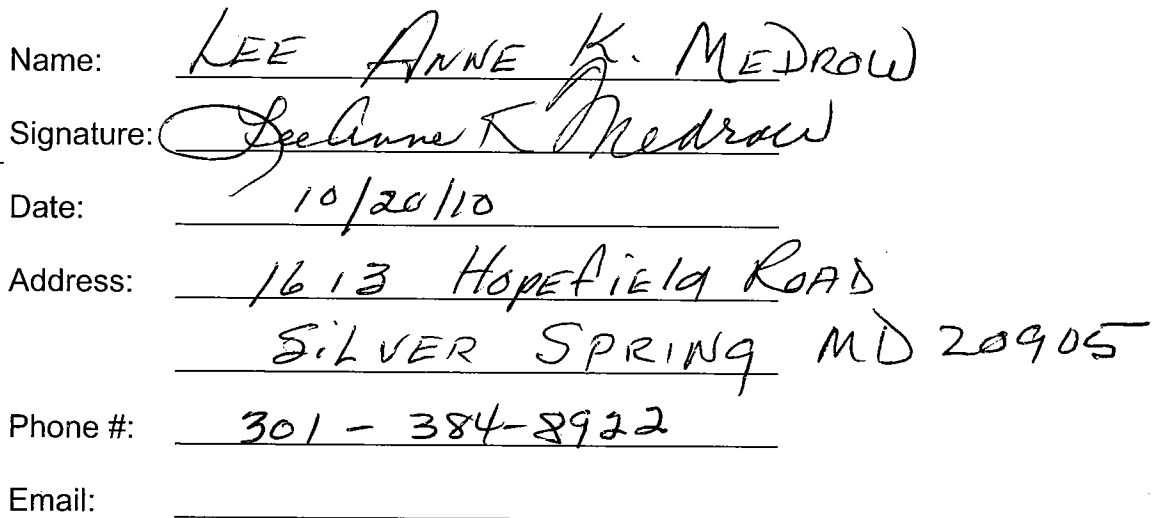 Name: LEE ANNE K. MEDROW
Signature: Lee Anne K Medrow
Date: 10/20/10
Address: 1613 HOPEfiEld ROAD
SiLVER SPRING MD 20905
Phone #: 301-384-8922
Email: